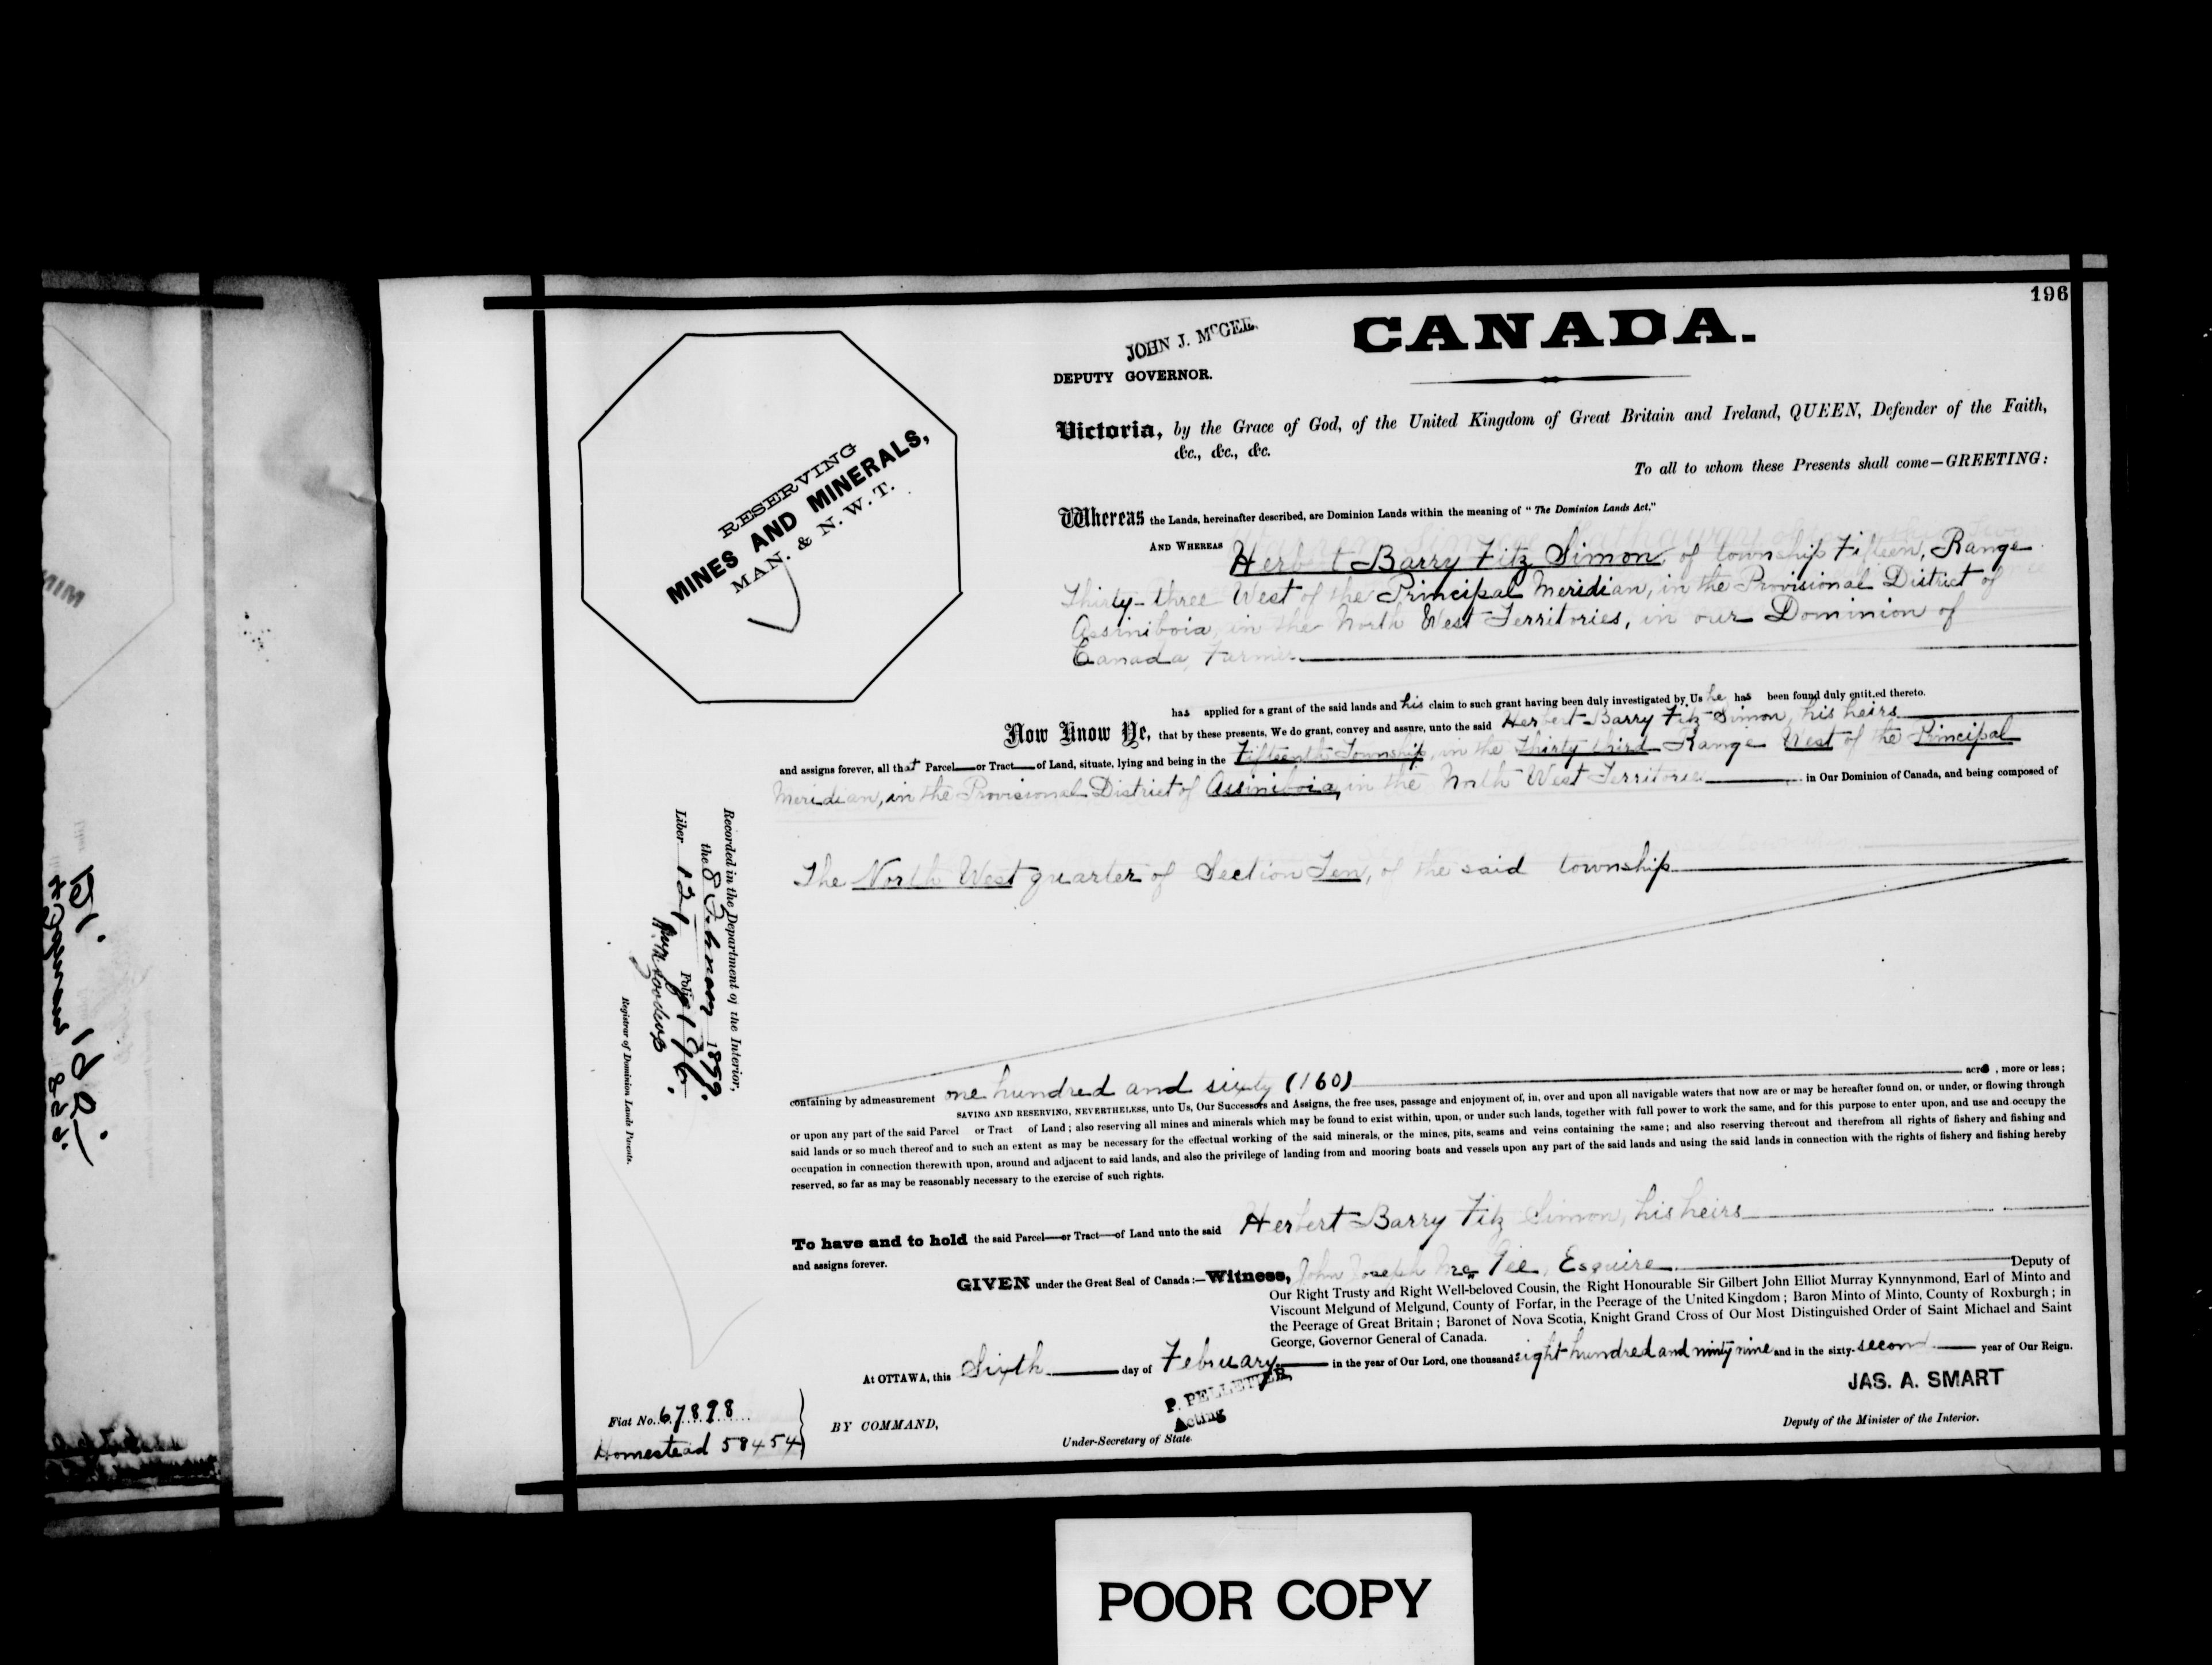 196
CANADA.
JOHN J. McGEE.
DEPUTY GOVERNOR.
RESERVING
MINES AND MINERALS,
MAN. & N. W. T.
Victoria, by the Grace of God, of the United Kingdom of Great Britain and Ireland, QUEEN, Defender of the Faith,
&c., &c., &c.
To all to whom these Presents shall come—GREETING:
Whereas the Lands, hereinafter described, are Dominion Lands within the meaning of "The Dominion Lands Act."
AND WHEREAS Herbert Barry Fitz Simon, of township Fifteen, Range
Thirty-three West of the Principal Meridian, in the Provisional District of
Assiniboia, in the North West Territories, in our Dominion of
Canada, Farmer
has applied for a grant of the said lands and his claim to such grant having been duly investigated by Us he has been found duly entitled thereto.
Now Know Ye, that by these presents, We do grant, convey and assure, unto the said Herbert Barry Fitz Simon, his heirs
and assigns forever, all that Parcel or Tract of Land, situate, lying and being in the Fifteenth Township, in the Thirty third Range West of the Principal
Meridian, in the Provisional District of Assiniboia, in the North West Territories in Our Dominion of Canada, and being composed of
The North West quarter of Section Ten, of the said township
Recorded in the Department of the Interior,
the 8 February 1899.
Liber 121 Folio 196.
Registrar of Dominion Lands Patents.
containing by admeasurement one hundred and sixty (160) acres, more or less;
SAVING AND RESERVING, NEVERTHELESS, unto Us, Our Successors and Assigns, the free uses, passage and enjoyment of, in, over and upon all navigable waters that now are or may be hereafter found on, or under, or flowing through
or upon any part of the said Parcel or Tract of Land; also reserving all mines and minerals which may be found to exist within, upon, or under such lands, together with full power to work the same, and for this purpose to enter upon, and use and occupy the
said lands or so much thereof and to such an extent as may be necessary for the effectual working of the said minerals, or the mines, pits, seams and veins containing the same; and also reserving thereout and therefrom all rights of fishery and fishing and
occupation in connection therewith upon, around and adjacent to said lands, and also the privilege of landing from and mooring boats and vessels upon any part of the said lands and using the said lands in connection with the rights of fishery and fishing hereby
reserved, so far as may be reasonably necessary to the exercise of such rights.
To have and to hold the said Parcel or Tract of Land unto the said Herbert Barry Fitz Simon, his heirs
and assigns forever.
GIVEN under the Great Seal of Canada:—Witness, John Joseph McGee, Esquire Deputy of
Our Right Trusty and Right Well-beloved Cousin, the Right Honourable Sir Gilbert John Elliot Murray Kynnynmond, Earl of Minto and
Viscount Melgund of Melgund, County of Forfar, in the Peerage of the United Kingdom; Baron Minto of Minto, County of Roxburgh; in
the Peerage of Great Britain; Baronet of Nova Scotia, Knight Grand Cross of Our Most Distinguished Order of Saint Michael and Saint
George, Governor General of Canada.
At OTTAWA, this Sixth day of February in the year of Our Lord, one thousand eight hundred and ninty nine and in the sixty-second year of Our Reign.
JAS. A. SMART
Deputy of the Minister of the Interior.
Fiat No. 67898
Homestead 58454
BY COMMAND,
P. PELLETIER
Acting
Under-Secretary of State
POOR COPY